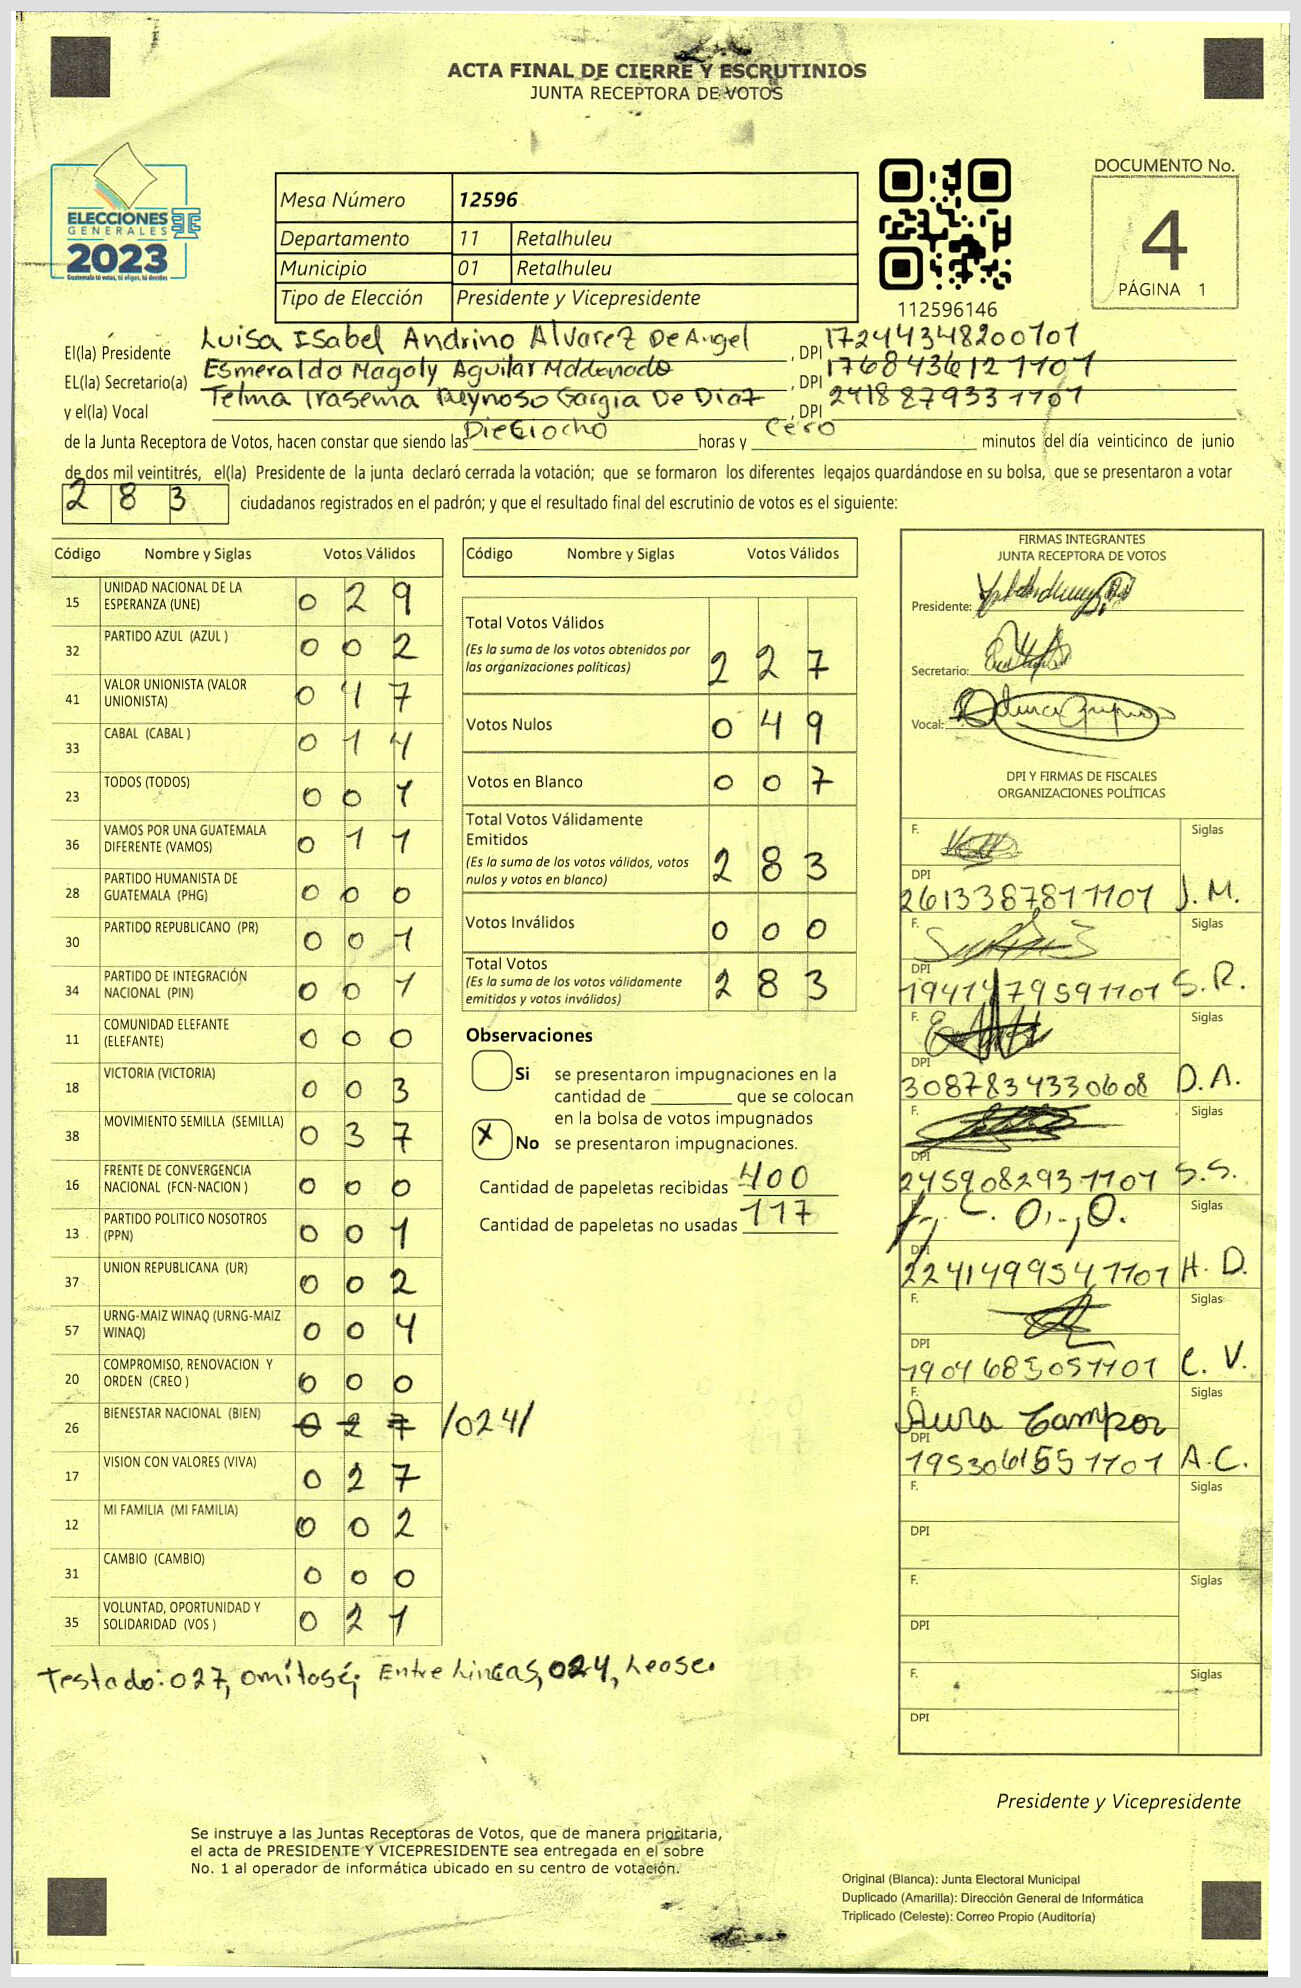 ACTA FINAL DE CIERRE Y ESCRUTINIOS
JUNTA RECEPTORA DE VOTOS
ELECCIONES
GENERALES
2023
Guatemala tú votas, tú eliges, tú decides
Mesa Número 12596
Departamento 11 Retalhuleu
Municipio 01 Retalhuleu
Tipo de Elección Presidente y Vicepresidente
112596146
DOCUMENTO No.
4
PÁGINA 1
El(la) Presidente Luisa Isabel Andrino Alvarez De Angel , DPI 1724434820101
EL(la) Secretario(a) Esmeralda Magaly Aguilar Maldonado , DPI 1768436121101
y el(la) Vocal Telma Irasema Reynoso Garcia De Diaz , DPI 2418879331101
de la Junta Receptora de Votos, hacen constar que siendo las Dieciocho horas y Cero minutos del día veinticinco de junio
de dos mil veintitrés, el(la) Presidente de la junta declaró cerrada la votación; que se formaron los diferentes legajos guardándose en su bolsa, que se presentaron a votar
283 ciudadanos registrados en el padrón; y que el resultado final del escrutinio de votos es el siguiente:
Código Nombre y Siglas Votos Válidos
15 UNIDAD NACIONAL DE LA ESPERANZA (UNE) 029
32 PARTIDO AZUL (AZUL ) 002
41 VALOR UNIONISTA (VALOR UNIONISTA) 047
33 CABAL (CABAL ) 014
23 TODOS (TODOS) 001
36 VAMOS POR UNA GUATEMALA DIFERENTE (VAMOS) 011
28 PARTIDO HUMANISTA DE GUATEMALA (PHG) 000
30 PARTIDO REPUBLICANO (PR) 001
34 PARTIDO DE INTEGRACIÓN NACIONAL (PIN) 001
11 COMUNIDAD ELEFANTE (ELEFANTE) 000
18 VICTORIA (VICTORIA) 003
38 MOVIMIENTO SEMILLA (SEMILLA) 037
16 FRENTE DE CONVERGENCIA NACIONAL (FCN-NACION ) 000
13 PARTIDO POLITICO NOSOTROS (PPN) 001
37 UNION REPUBLICANA (UR) 002
57 URNG-MAIZ WINAQ (URNG-MAIZ WINAQ) 004
20 COMPROMISO, RENOVACION Y ORDEN (CREO ) 000
26 BIENESTAR NACIONAL (BIEN) 027 /024/
17 VISION CON VALORES (VIVA) 027
12 MI FAMILIA (MI FAMILIA) 002
31 CAMBIO (CAMBIO) 000
35 VOLUNTAD, OPORTUNIDAD Y SOLIDARIDAD (VOS ) 021
Testado: 027, omítase; Entre Lineas, 024, Lease.
Código Nombre y Siglas Votos Válidos
Total Votos Válidos
(Es la suma de los votos obtenidos por
las organizaciones políticas) 227
Votos Nulos 049
Votos en Blanco 007
Total Votos Válidamente
Emitidos
(Es la suma de los votos válidos, votos
nulos y votos en blanco) 283
Votos Inválidos 000
Total Votos
(Es la suma de los votos válidamente
emitidos y votos inválidos) 283
Observaciones
Si se presentaron impugnaciones en la
cantidad de ________ que se colocan
en la bolsa de votos impugnados
X No se presentaron impugnaciones.
Cantidad de papeletas recibidas 400
Cantidad de papeletas no usadas 117
FIRMAS INTEGRANTES
JUNTA RECEPTORA DE VOTOS
Presidente:
Secretario:
Vocal:
DPI Y FIRMAS DE FISCALES
ORGANIZACIONES POLÍTICAS
F. Siglas
DPI
2613387811101 J.M.
F. Siglas
DPI
1941479591101 S.R.
F. Siglas
DPI
3087834330608 D.A.
F. Siglas
DPI
2459082931101 S.S.
F. Siglas
DPI
2241499541101 H.D.
F. Siglas
DPI
1904685051101 C.V.
F. Siglas
Aura Campos
DPI
1953061551101 A.C.
F. Siglas
DPI
F. Siglas
DPI
F. Siglas
DPI
Presidente y Vicepresidente
Se instruye a las Juntas Receptoras de Votos, que de manera prioritaria,
el acta de PRESIDENTE Y VICEPRESIDENTE sea entregada en el sobre
No. 1 al operador de informática ubicado en su centro de votación.
Original (Blanca): Junta Electoral Municipal
Duplicado (Amarilla): Dirección General de Informática
Triplicado (Celeste): Correo Propio (Auditoría)